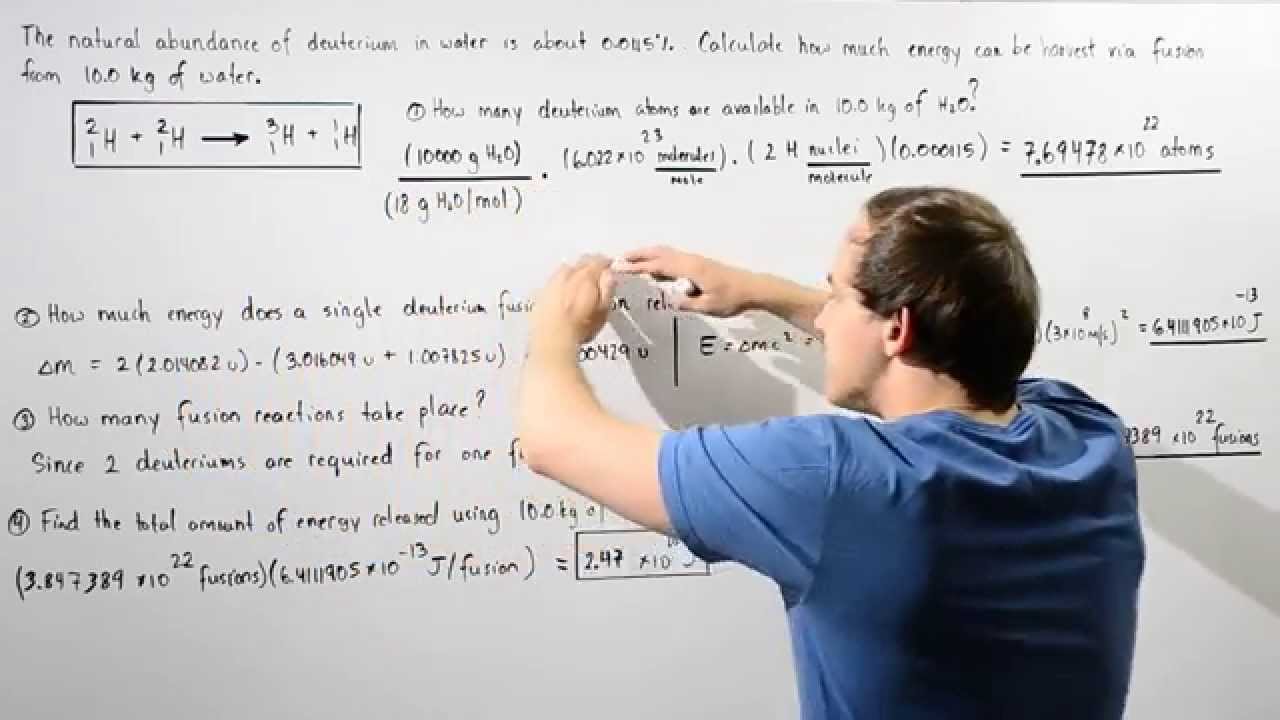 The natural abundance of deuterium in water is about 0.0115%. Calculate how much energy can be harvest via fusion
from 10.0 kg of water.
²₁H + ²₁H → ³₁H + ¹₁H
① How many deuterium atoms are available in 10.0 kg of H₂O?
(10000 g H₂O)/(18 g H₂O/mol) · (6.022×10²³ molecules/mole) · (2 H nuclei/molecule)(0.000115) = 7.69478×10²² atoms
② How much energy does a single deuterium
Δm = 2(2.014082 u) - (3.016049 u + 1.007825 u) 00429 u | E = Δmc² = )(3×10⁸ m/s)² = 6.4111905×10⁻¹³ J
③ How many fusion reactions take place?
Since 2 deuteriums are required for one 389 ×10²² fusions
④ Find the total amount of energy released using 10.0 kg
(3.847389 ×10²² fusions)(6.4111905×10⁻¹³ J/fusion) = 2.47 ×10 J